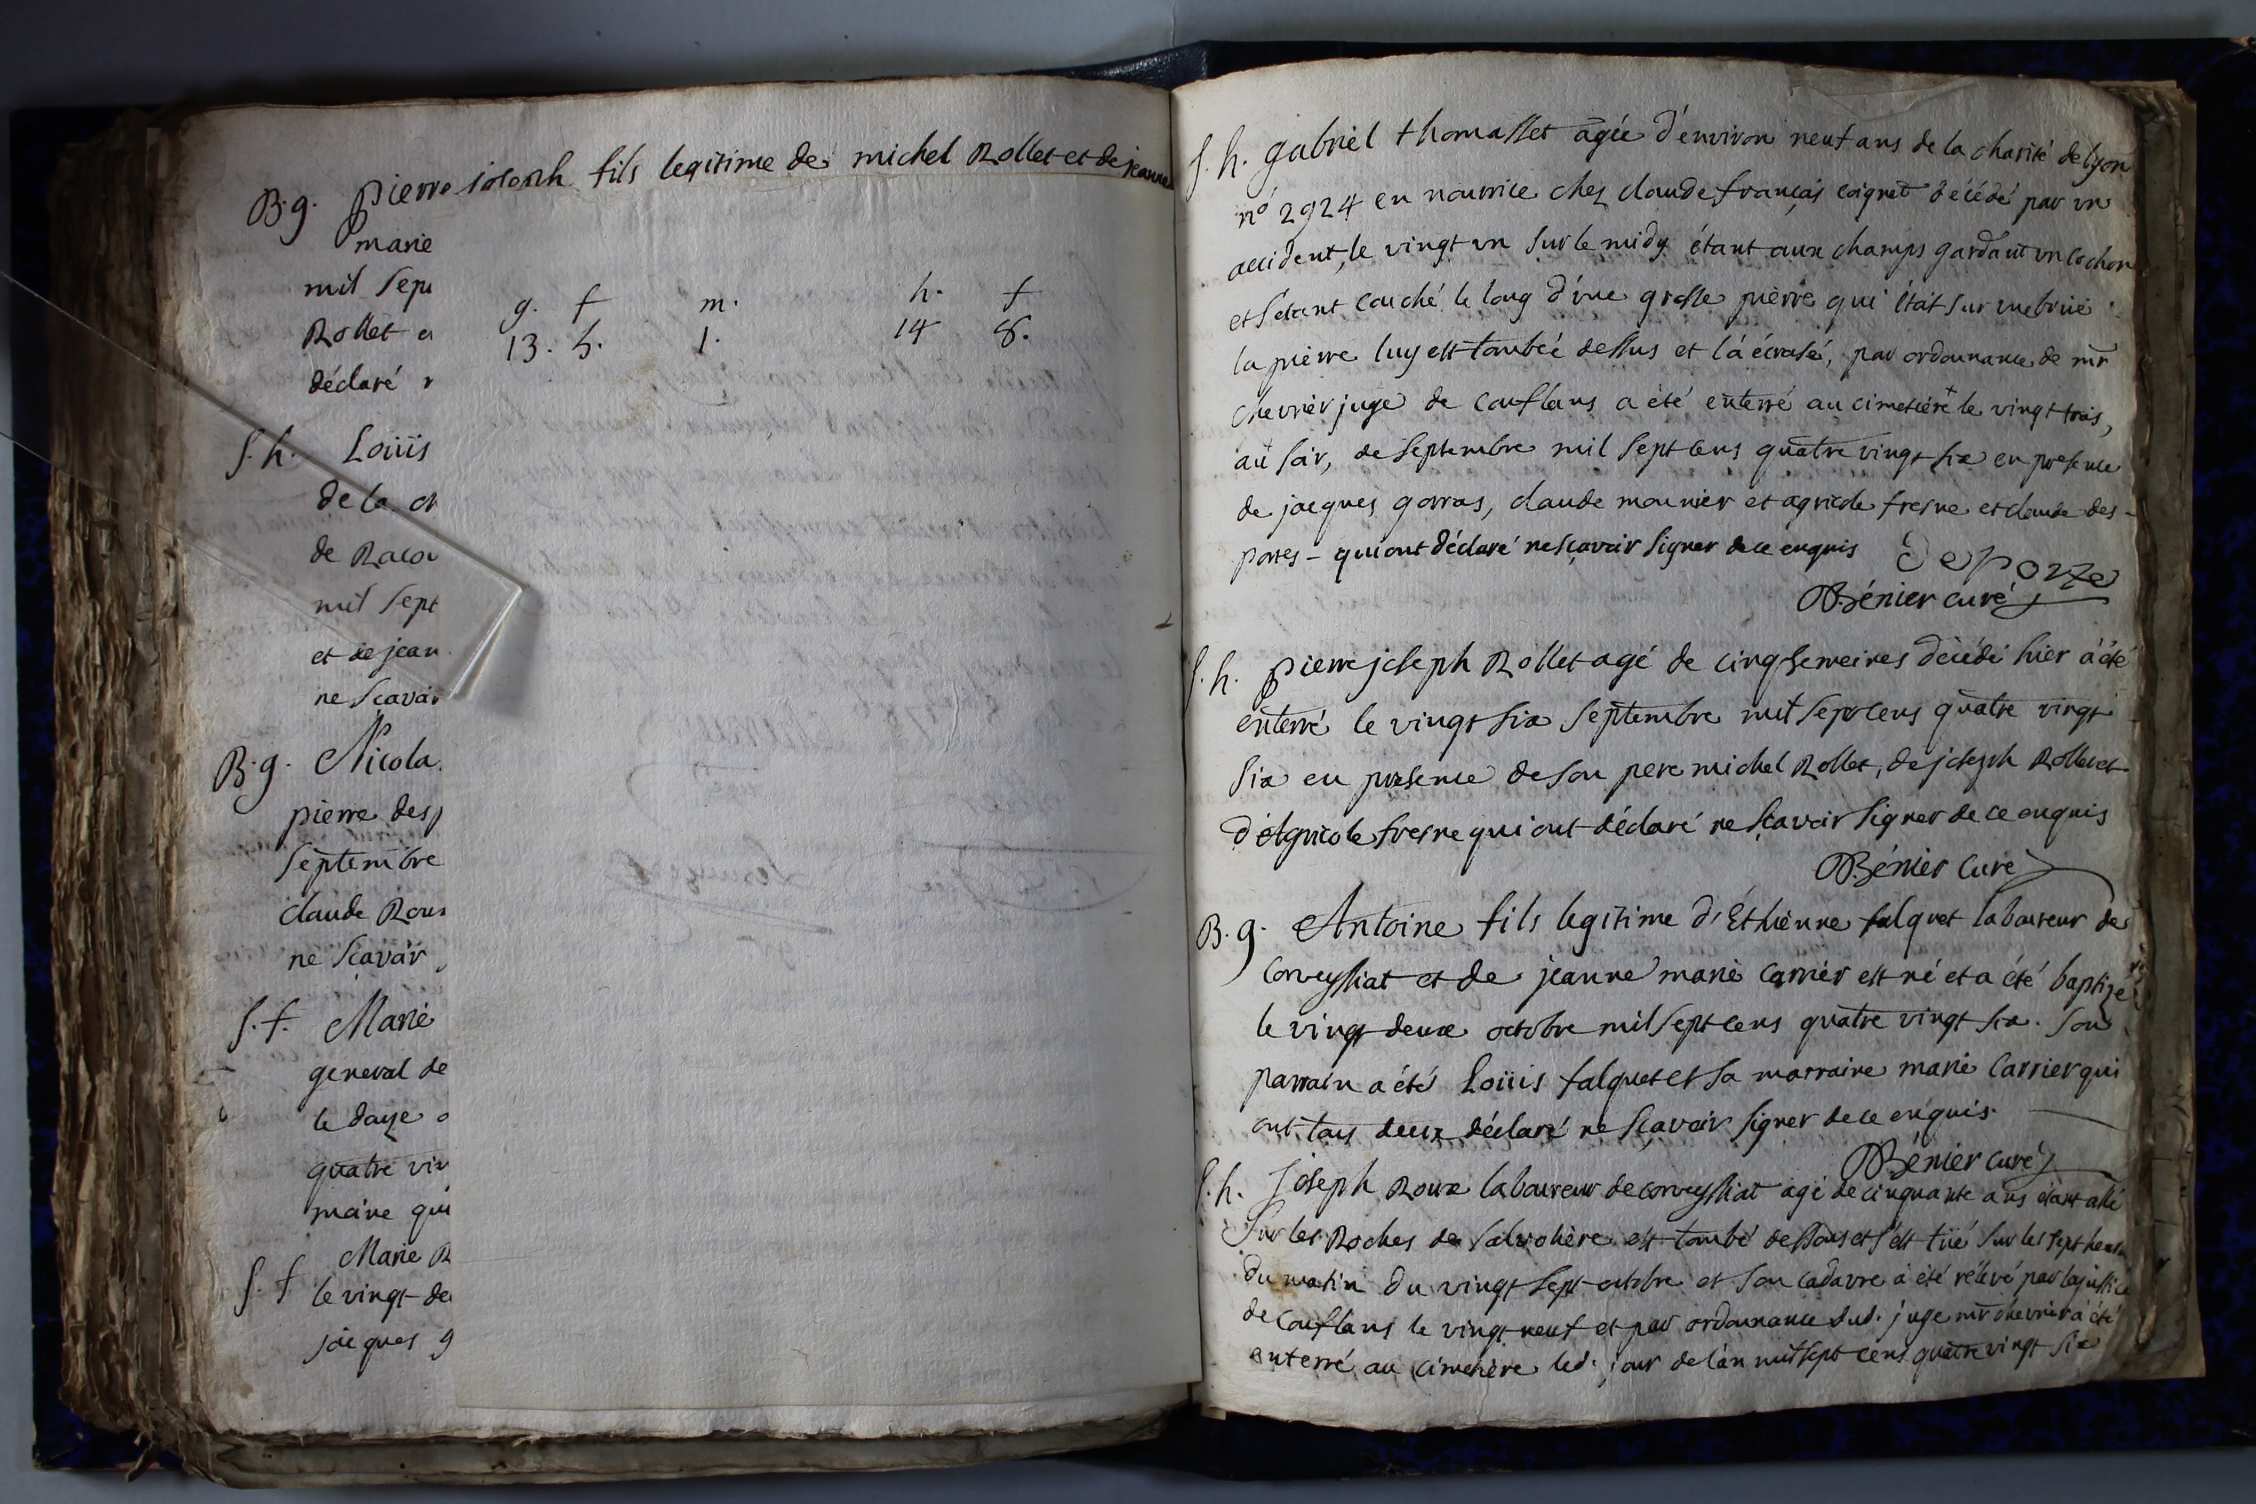 B. g. pierre joseph fils legitime de michel Rollet et de jeanne
marie
mil sept
Rollet
déclaré
g. f m. h. f
13. 5. 1. 14 8.
S. h. Loüis
de la
de
mil sept
et de jean
ne scavoir
B. g. Nicola
pierre des
septembre
claude
ne scavoir
S. f. Marie
general de
le douze
quatre vin
qui
S. f Marie R
le vingt de
jacques g
S. h. gabriel thomasset agée d'environ neuf ans de la charité de lyon
n° 2924 en nourrice chez claude françois coignet décédé par vn
accident, le vingt vn sur le midy étant aux champs gardant vn cochon
et s'étant couché le long d'vne grosse pierre qui étoit sur
la pierre luy est tombée dessus et l'a écrasé, par ordonnance de mr
chevrier juge de conflans a été enterré au cimetiére le vingt trois,
au soir, de septembre mil sept cens quatre vingt six en presence
de jacques gorras, claude mounier et agricole fresne et claude des-
portes - qui ont déclaré ne sçavoir signer de ce enquis deporte
Bénier curé
S. h. pierre joseph Rollet agé de cinq semeines décédé hier a été
enterré le vingt six septembre mil sept cens quatre vingt
six en presence de son pere michel Rollet, de joseph Rollet et
d'Agricole fresne qui ont déclaré ne sçavoir signer de ce enquis
Bénier curé
B. g. Antoine fils legitime d'Éthienne falquet laboureur de
corveyssiat et de jeanne marie carrier est né et a été baptizé
le vingt deux octobre mil sept cens quatre vingt six. son
parrain a été Loüis falquet et sa marraine marie Carrier qui
ont tous deux déclaré ne sçavoir signer de ce enquis.
Bénier curé
S. h. Joseph Roux laboureur de corveyssiat agé de cinquante ans étant allé
sur les Roches de est tombé dessous et s'est tüé sur les sept heures
du matin du vingt sept octobre et son cadavre a été rélevé par la justice
de conflans le vingt neuf et par ordonnance dud. juge mr chevrier a été
enterré au cimetière led. jour de l'an mil sept cens quatre vingt six